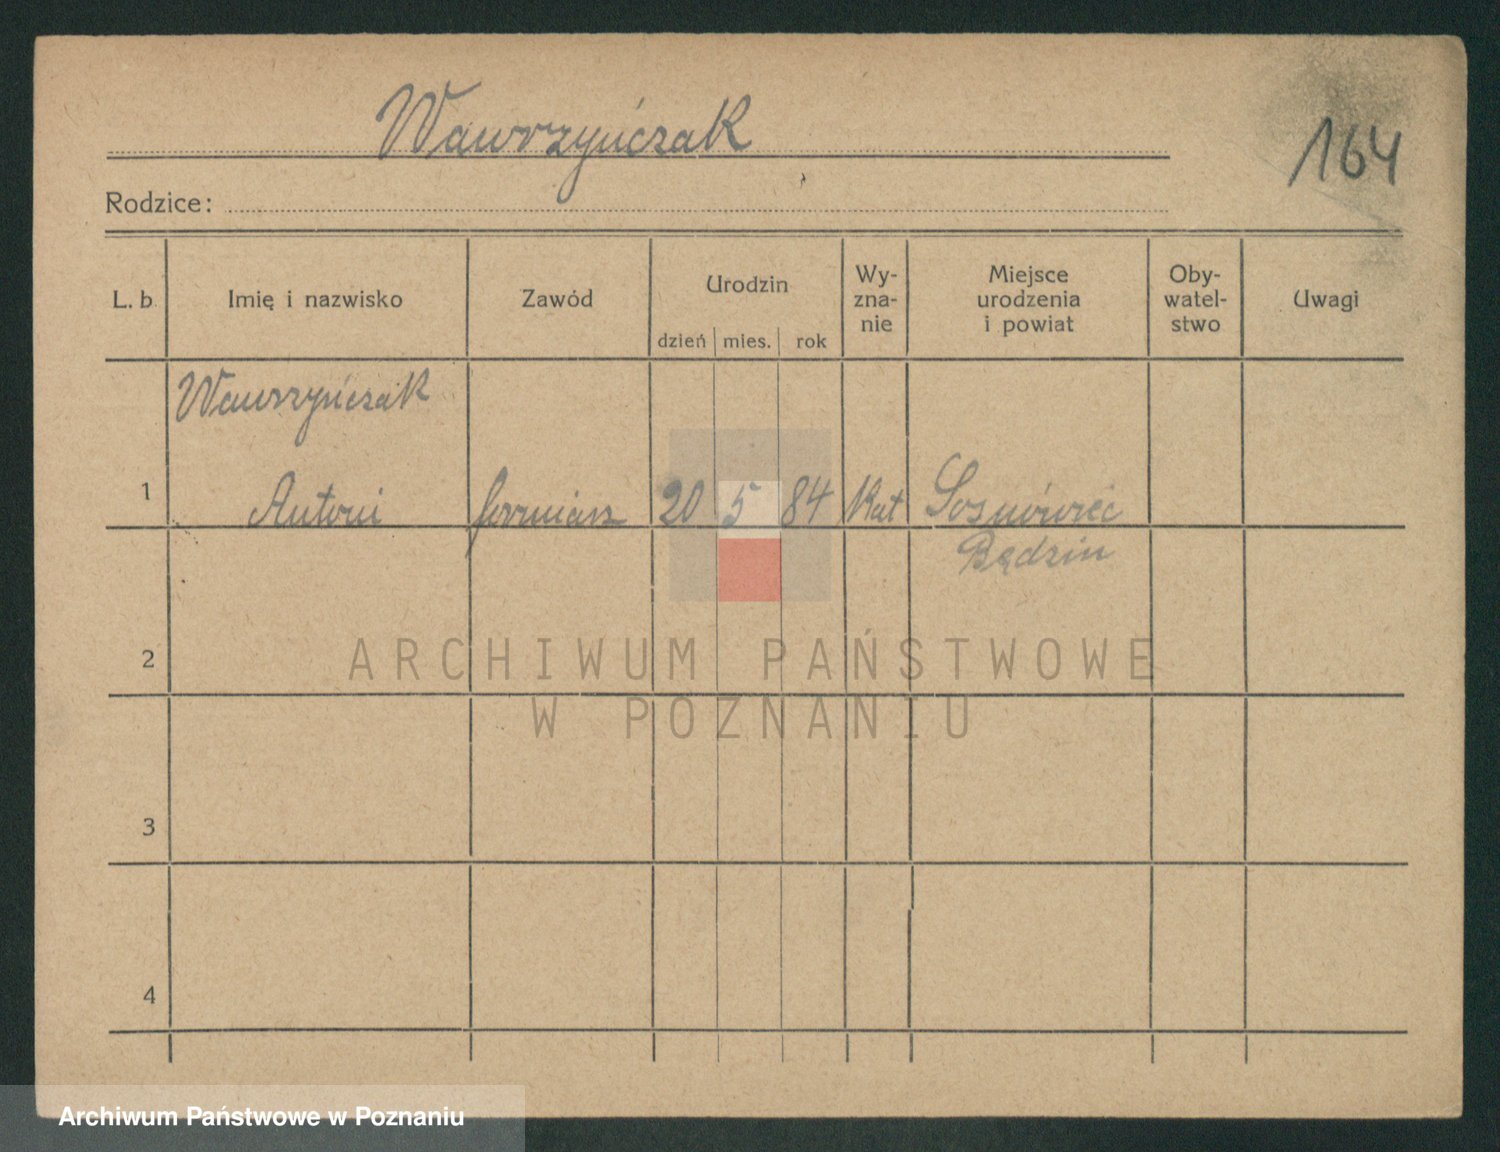 Wawrzyńczak
164
Rodzice:
L. b.
Imię i nazwisko
Zawód
Urodzin
dzień mies. rok
Wy-
zna-
nie
Miejsce
urodzenia
i powiat
Oby-
watel-
stwo
Uwagi
Wawrzyńczak
1 Antoni formiarz 20 5 84 Kat Sosnówiec
Będzin
2
3
4
ARCHIWUM PAŃSTWOWE
W POZNANIU
Archiwum Państwowe w Poznaniu